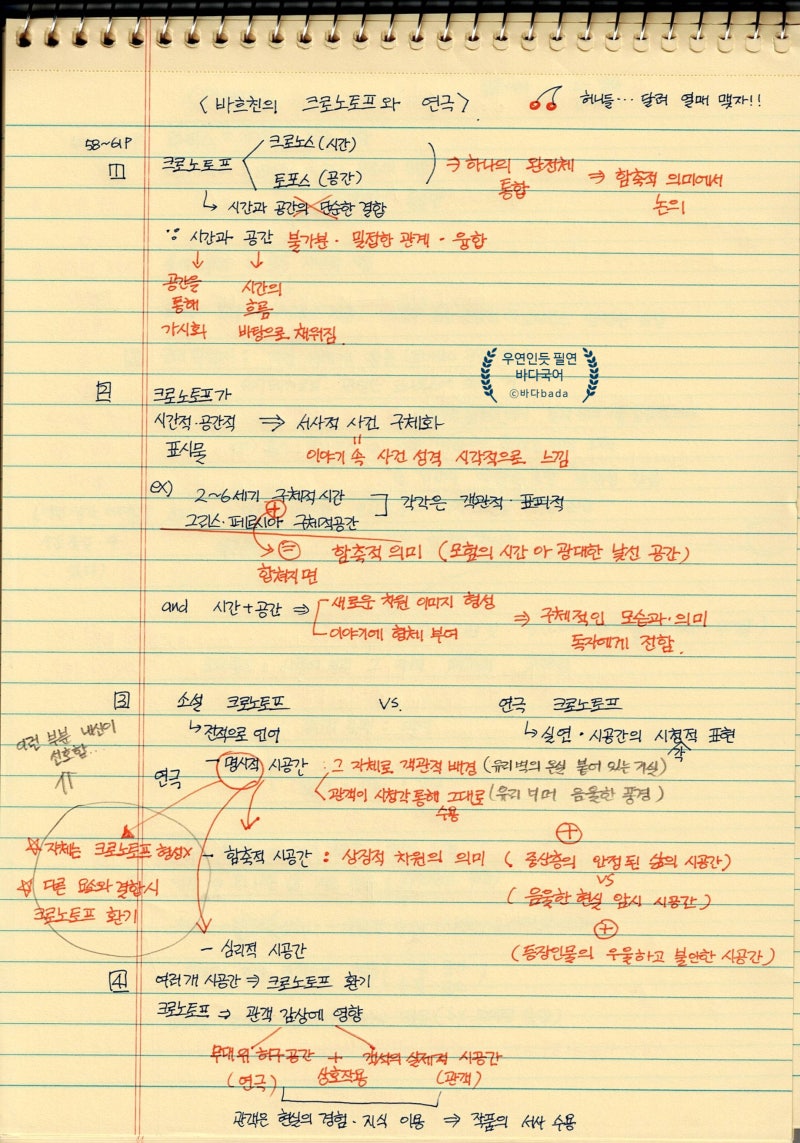 〈 바흐친의 크로노토프와 연극 〉 허니들… 달려 열매 맺자!!
58~61P
1 크로노토프 크로노스 (시간)
토포스 (공간)
⇒ 하나의 완전체 통합 ⇒ 함축적 의미에서 논의
↳ 시간과 공간의 단순한 결합
∵ 시간과 공간 불가분 · 밀접한 관계 · 융합
↓ ↓
공간을 시간의
통해 흐름
가시화 바탕으로 채워짐.
우연인듯 필연
바다국어
ⓒ바다bada
2 크로노토프가
시간적·공간적 ⇒ 서사적 사건 구체화
표시물 이야기 속 사건 성격 시각적으로 느낌
ex) 2~6세기 구체적 시간
그리스·페르시아 구체적공간
각각은 객관적·표피적
+
= 함축적 의미 (모험의 시간 아 광대한 낯선 공간)
합쳐지면
and 시간+공간 ⇒ 새로운 차원 이미지 형성
이야기에 형체 부여
⇒ 구체적인 모습과·의미
독자에게 전함.
3 소설 크로노토프 VS. 연극 크로노토프
↳ 전적으로 언어 ↳ 실연·시공간의 시청각적 표현
이런 부분 내신이
선호함…
⇑
연극 - 명시적 시공간 : 그 자체로 객관적 배경 (유리벽의 온실 붙어 있는 거실)
관객이 시청각 통해 그대로 수용 (유리 너머 음울한 풍경)
+
☆ 자체는 크로노토프 형성X
☆ 다른 요소와 결합시
크로노토프 환기
- 함축적 시공간 : 상징적 차원의 의미 ( 중상층의 안정된 삶의 시공간)
VS
( 음울한 현실 암시 시공간 )
+
- 심리적 시공간 (등장인물의 우울하고 불안한 시공간)
4 여러개 시공간 ⇒ 크로노토프 환기
크로노토프 ⇒ 관객 감상에 영향
무대위 허구공간 + 객석의 실제적 시공간
(연극) 상호작용 (관객)
관객은 현실의 경험·지식 이용 ⇒ 작품의 서사 수용